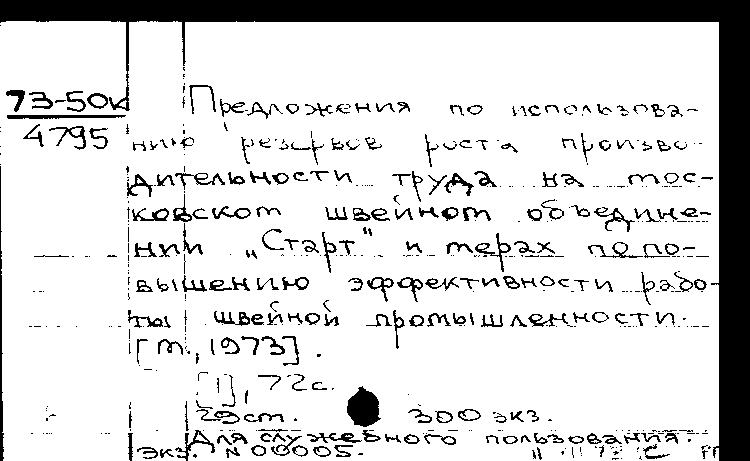 73-50к
4795
Предложения по использова-
нию резервов роста произво-
дительности труда на мос-
ковском швейном объедине-
нии „Старт" и мерах по по-
вышению эффективности рабо-
ты швейной промышленности.
[М., 1973].
[1], 72с.
29см. 300 экз.
Для служебного пользования.
Экз. N 00005.